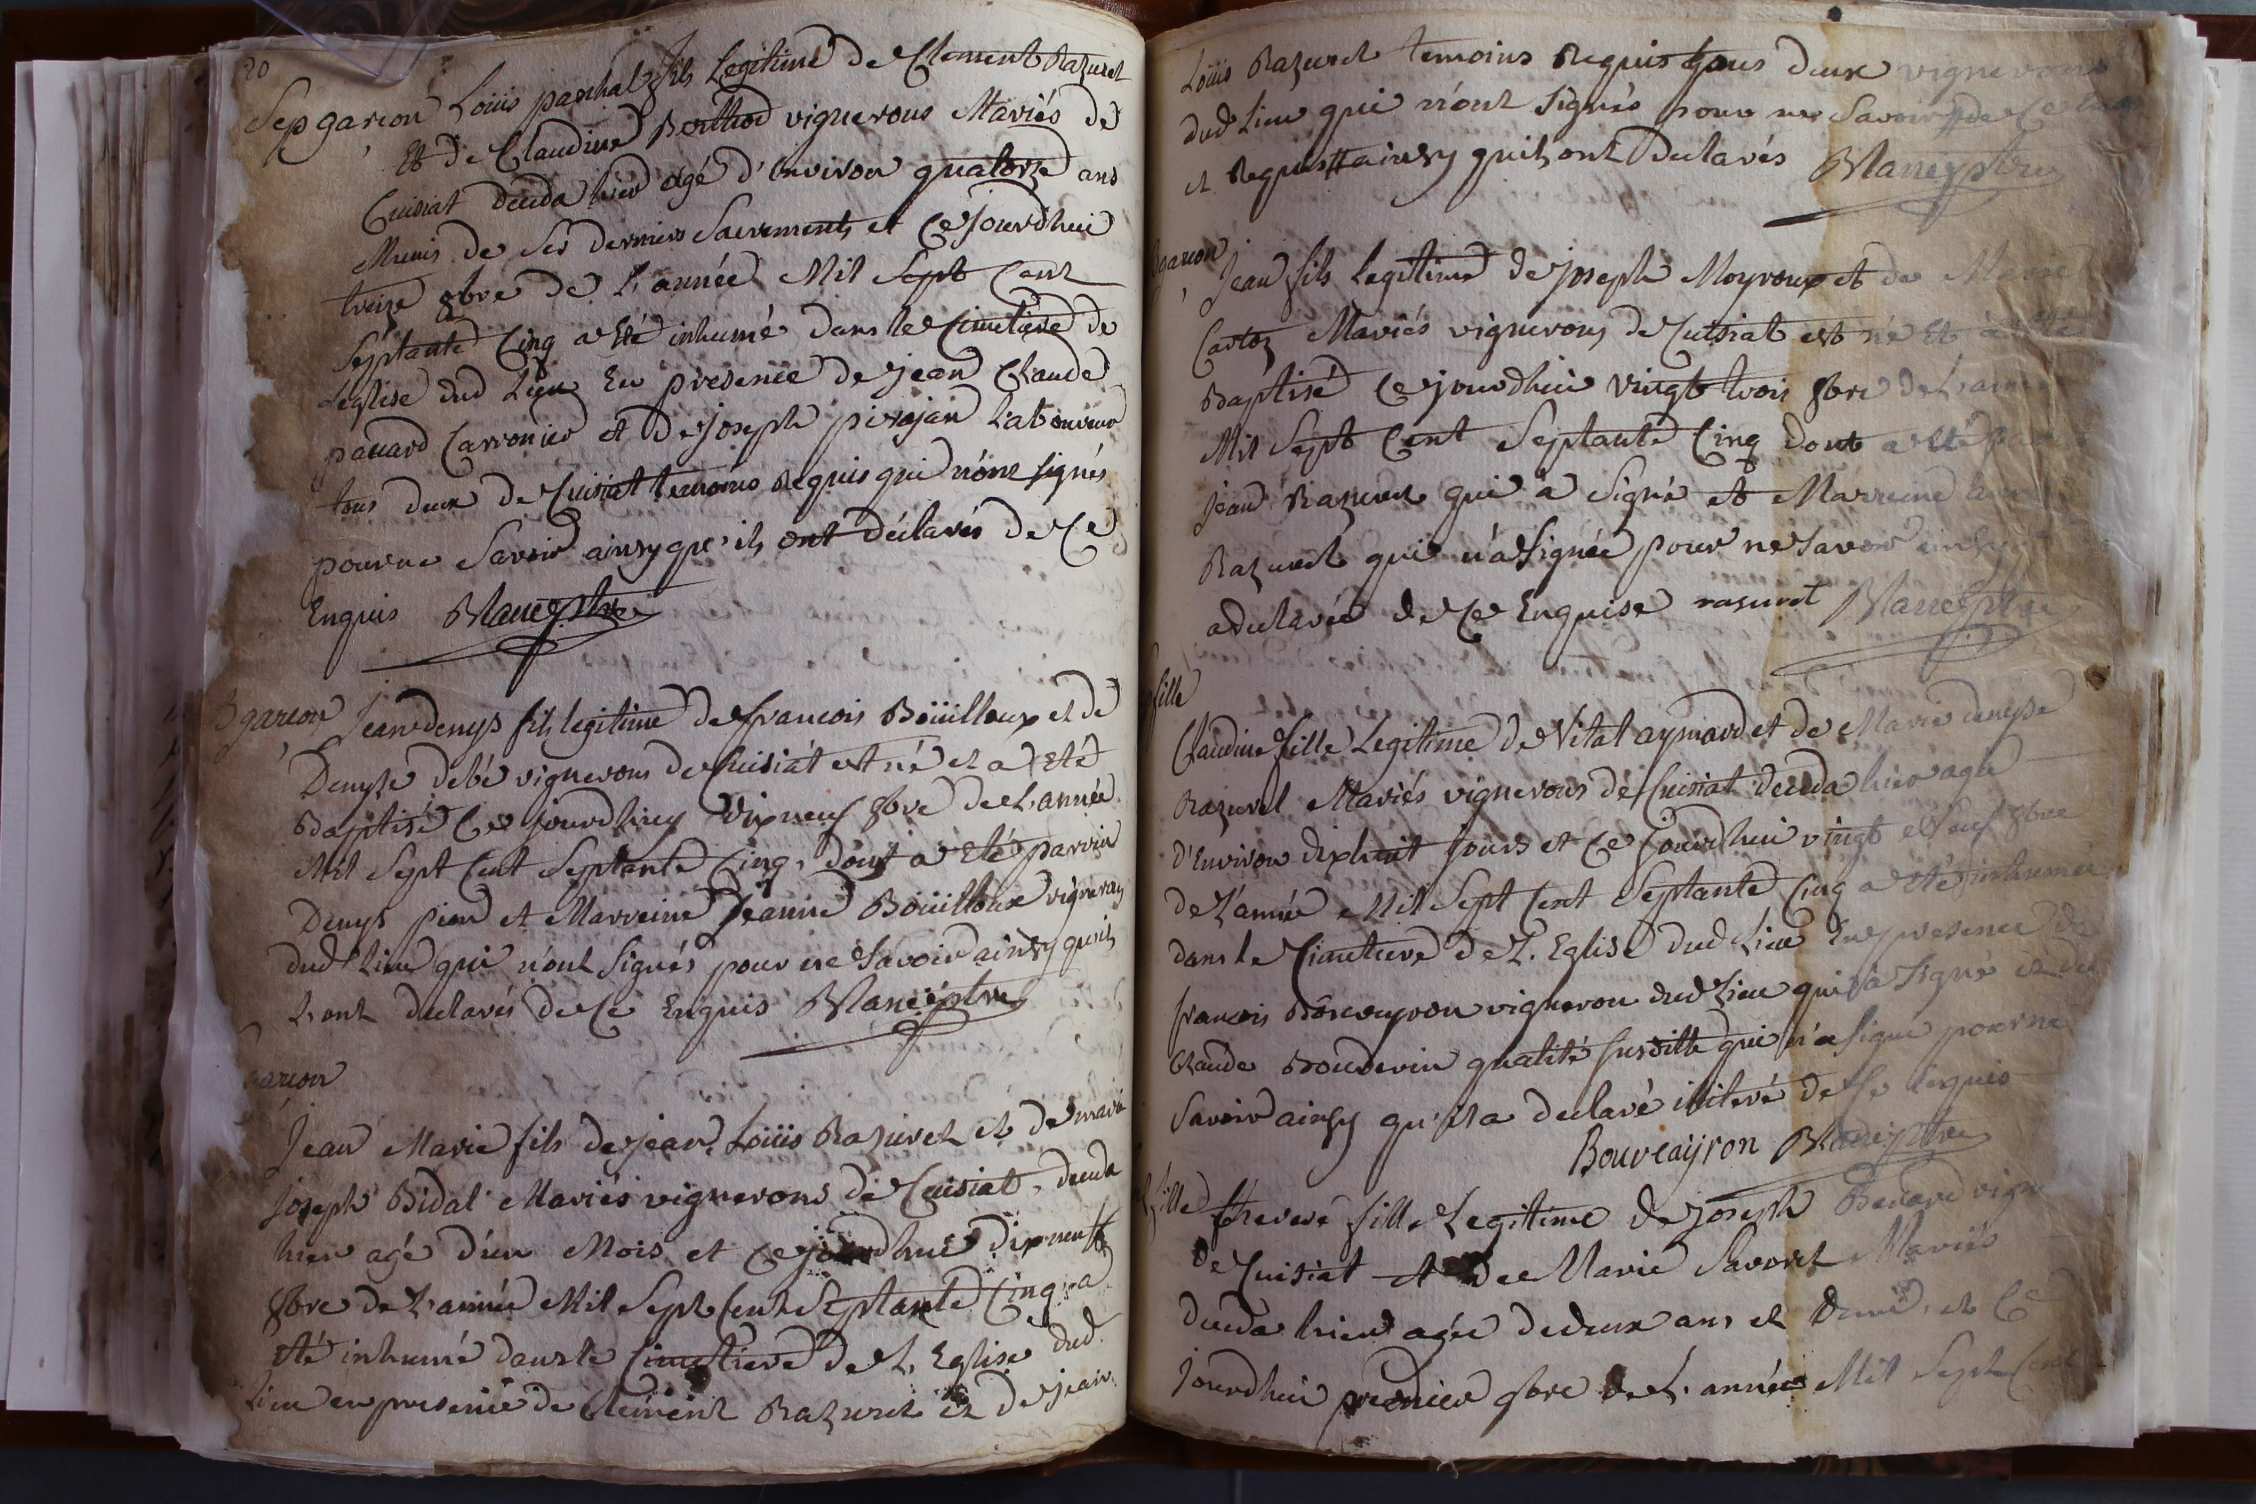 20
Sep garcon Loüis paschal fils Legitime de Clement Razurel
Et de Claudine Berthod vignerons Mariés de
Cuisiat deceda hier agé d'Environ quatorze ans
Munis de Ses derniers Sacrements et Ce Jourdhui
treize 8bre de L'année Mil Sept Cent
Septante Cinq a Eté inhumé dans le Cimetiere de
L'eglise dud Lieu En presence de jean Claude
paward Carronier et de joseph pirajan Laboureur
tous deux de Cuisiat temoins Requis qui n'ont signés
pour ne Savoir ainsy que ils ont déclarés de Ce
Enquis Mareyptre
B garcon Jean denys fils legitime de francois Boüilloux et de
Denyse debé vignerons de Cuisiat est né et a Eté
Baptisé Ce jourdhuy dix neuf 8bre de L'année
Mil Sept Cent Septante Cinq, dont a Eté parrin
Denys et Marreine Jeanne Boüilloux vignerons
dud Lieu qui n'ont Signés pour ne Savoir ainsy quils
L'ont declarés de Ce Enquis Mareyptre
garcon
Jean Marie fils de jean Loüis Razurel et de marie
joseph Bidal Mariés vignerons de Cuisiat, deceda
hier agé d'un Mois et Ce jourdhui dixneuf
8bre de L'année Mil Sept Cent Septante Cinq a
Eté inhumé dans le Cimetiere de L'Eglise dud.
Lieu en presence de Clement Razurel et de jean
Loüis Razurel temoins Requis tous deux vignerons
dud Lieu qui n'ont Signés pour ne Savoir # de Ce
et Requis # ainsy quils ont Declarés Mareyptre
B garcon
Jean fils Legitime de joseph Moyroux et de Marie
Cartoz Mariés vignerons de Cuisiat est né Et a Eté
Baptisé Ce jourdhui vingt trois 8bre de L'année
Mil Sept Cent Septante Cinq dont a Eté
Jean Razurel qui a Signé et Marreine
Razurel qui n'a Signée pour ne Savoir ainsy
a declarée de Ce Enquise rasurel Mareyptre
fille
Claudine fille Legitime de Vital aymard et de Marie denyse
Razurel Mariés vignerons de Cuisiat deceda hier agée
d'Environ dixhuit jours et Ce jourdhui vingt neuf 8bre
de L'année Mil Sept Cent Septante Cinq a Eté inhumée
dans le Cimetiere de L'Eglise dud Lieu En presence de
francois Bouveyron vigneron dud Lieu qui a Signé et de
Claude Bouderin qualité susditte qui n'a Signé pour ne
Savoir ainsy qu'il a declaré illiteré de Ce Enquis
Bouveaÿron Mareyptre
fille threse fille Legitime de joseph
de Cuisiat et de Marie Savorel Mariés
deceda hier agée de deux ans et Demi, et Ce
Jourdhui premier 9bre de L'année Mil Sept Cent